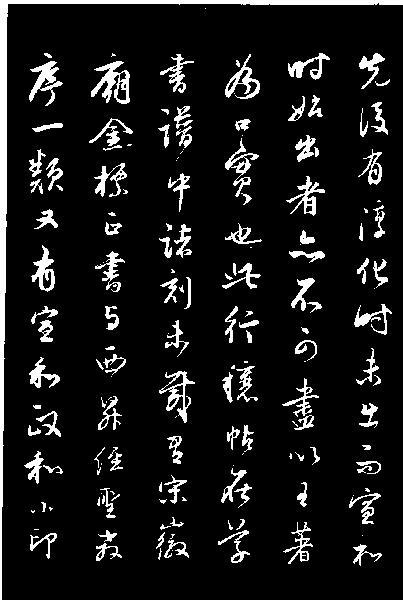 先後有淳化時未出而宣和
時始出者亦不可盡以王著
為口實也此行穰帖在
書譜中諸刻未載宋徽
廟金標正書與西昇經聖教
序一類又有宣和政和小印